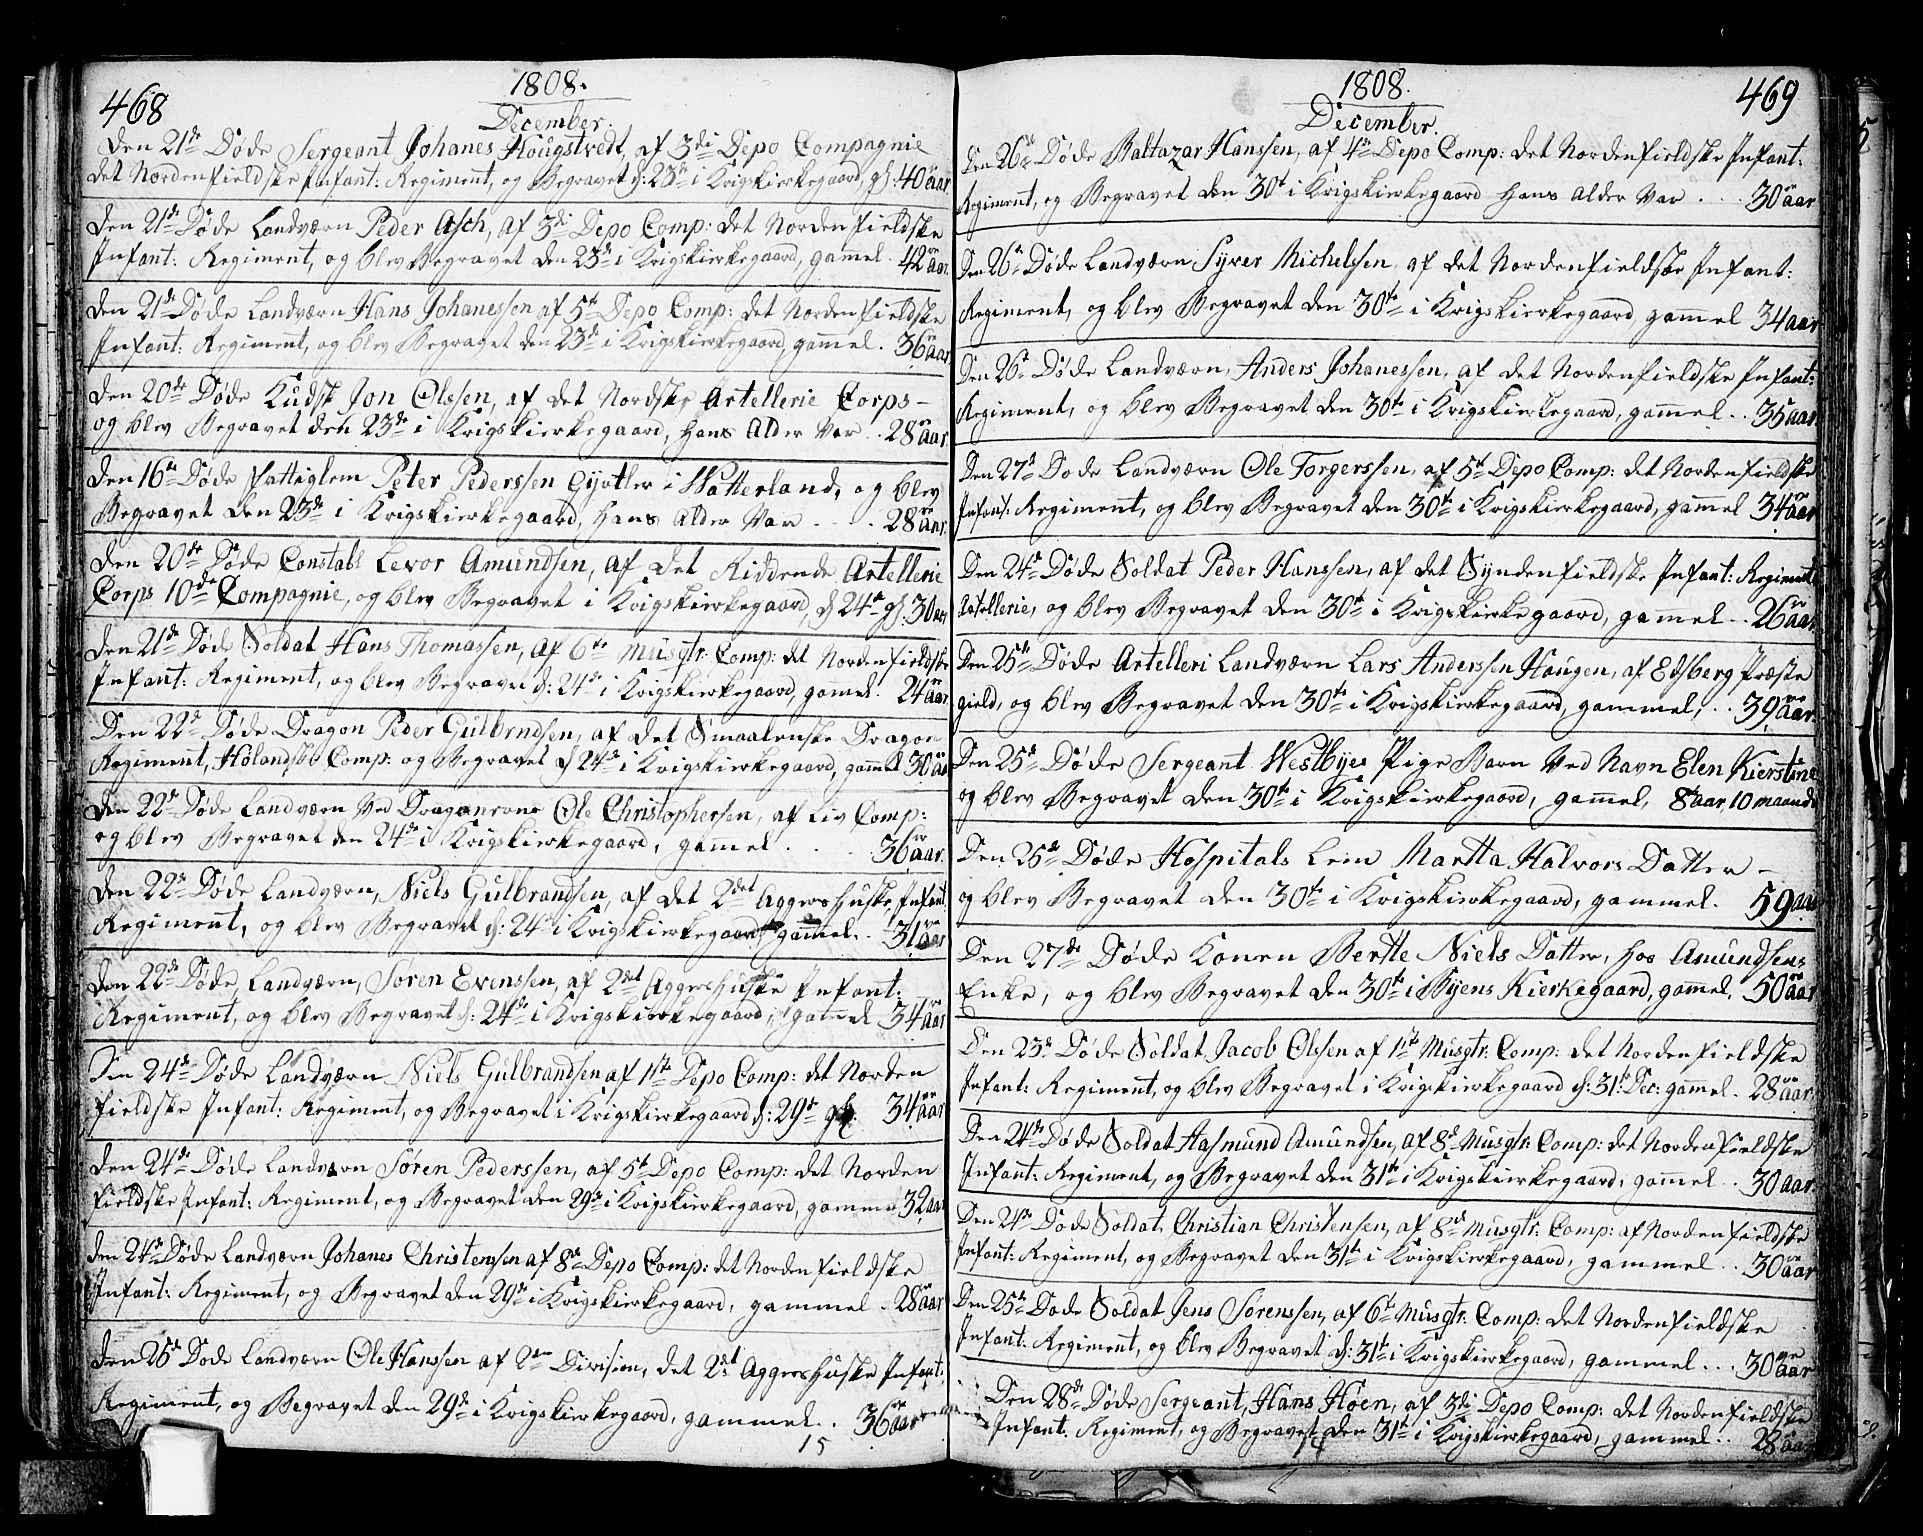 468
1808.
December.
Den 21de Døde Sergeant Johanes Hougstvedt, af 3di Depo Compagnie
det Nordenfieldske Infant: Regiment, og Begravet d: 23de i Krigskierkegaard, gl: 40 aar
Den 21de Døde Landværn Peder Asch, af 3di Depo Comp: det Nordenfieldske
Infant: Regiment, og blev Begravet den 23de i Krigskierkegaard, gamel. 42 aar.
Den 21de Døde Landværn Hans Johanessen af 5te Depo Comp: det Nordenfieldske
Infant: Regiment, og blev Begravet den 23de i Krigskierkegaard, gamel. 36 aar
Den 20de Døde Kudsk Jon Olssen, af det Nordske Artellerie Corps –
og blev Begravet den 23de i Krigskierkegaard, Hans Alder Var . . 28 aar
Den 16de Døde Fattiglem Peter Pederssen Gjørtler i Watterland, og blev
Begravet den 23de i Krigskierkegaard, Hans Alder Var . . . 28 aar.
Den 20de Døde Constabl Levor Amundsen, af det Riddende Artellerie
Corps 10de Compagnie, og blev Begravet i Krigskierkegaard, d 24de gl: 30 aar
Den 21de Døde Soldat Hans Thomassen, af 6te Musqtr: Comp: det Nordenfieldske
Infant: Regiment, og blev Begravet d: 24de i Krigskierkegaard, gamel. 24 aar
Den 22de Døde Dragon Peder Gulbrndsen, af det Smaalenske Dragon
Regiment, Hølandske Comp: og Begravet d 24de i Krigskierkegaard, gamel 30 aar
Den 22de Døde Landværn Ved Dragonrone Ole Christophersen, af Liv Comp:
og blev Begravet den 24de i Krigskierkegaard, gamel . . 36 aar.
Den 22de Døde Landværn, Niels Gulbrandsen, af det 2det Aggershuske Infant
Regiment, og blev Begravet d: 24de i Krigskierkegaard, gamel. . 31 aar
Den 22de Døde, Landværn, Søren Evenssen, af 2det Aggershuske Infant:
Regiment, og blev Begravet d: 24de i Krigskierkegaard, gamel 34 aar
Den 24de Døde Landværn Niels Gulbrandsen af 1ste Depo Comp: det Norden
fieldske Infant: Regiment, og Begravet i Krigskierkegaard d: 29de gl. 34 aar
Den 24de Døde Landværn Søren Pederssen, af 5te Depo Comp: det Norden
fieldske Infant: Regiment, og Begravet den 29de i Krigskierkegaard, gamme 32 aar
Den 24de Døde Landværn Johanes Christensen af 8de Depo Comp: det Nordenfieldske
Infant: Regiment, og Begravet den 29de i Krigskierkegaard, gammel . 28 aar
Den 25de Døde Landværn Ole Hanssen af 2den Division, det 2det Aggershuske Infant.
Regiment, og Begravet den 29de i Krigskierkegaard, gammel . . 36 aar
15
469
1808.
December.
Den 26de Døde Baltazar Hanssen, af 4de Depo Comp: det Nordenfieldske Infant:
Regiment, og Begravet den 30te i Krigskierkegaard Hans Alder Var . . . 30 aar
Den 26de Døde Landværn Syver Michelsen af det Nordenfieldske Infant:
Regiment, og blev Begravet den 30te i Krigskierkegaard, gamel 34 aar
Den 26de Døde Landværn, Anders Johanessen, af det Nordenfieldske Infant:
Regiment, og blev Begravet den 30te i Krigskierkegaard, gamel. . . 35 aar.
Den 27de Døde Landværn Ole Torgerssen, af 5te Depo Comp: det Nordenfieldske
Infant: Regiment, og blev Begravet den 30te i Krigskierkegaard, gamel 34 aar
Den 24de Døde Soldat Peder Hanssen, af det Syndenfieldske Infant: Regiment
Artellerie, og blev Begravet den 30te i Krigskierkegaard, gamel . . 26 aar
Den 25de Døde Artelleri Landværn Lars Anderssen Haugen, af Edsberg Præste
gield, og blev Begravet den 30te i Krigskierkegaard, gammel, . . 39 aar.
Den 25de Døde Sergeant Westbyes Pige Barn Ved Navn Elen Kierstine
og blev Begravet den 30te i Krigskierkegaard, gamel, 8 aar, 10 maande
Den 25de Døde Hospitals Lem Martta Halvors Datter –
og blev Begravet den 30te i Krigskierkegaard, gammel. 59 aar
Den 27de Døde Konen Bertte Niels Datter, hos Amundsens
Enke, og blev Begravet den 30te i Byens Kierkegaard, gamel, 50 aar
Den 23de Døde Soldat Jacob Olssen af 1ste Musqtr: Comp: det Nordenfieldske
Infant: Regiment, og blev Begravet i Krigskierkegaard d: 31te Dec: gamel . 28 aar
Den 24de Døde Soldat Aasmund Amundsen, af 8de Musqtr: Comp: det Nordenfieldske
Infant: Regiment, og Begravet den 31te i Krigskierkegaard, gamel . . 30 aar.
Den 24de Døde Soldat Christian Christensen, af 8de Musqtr: Comp: af Nordenfieldske
Infant: Regiment, og Begravet den 31te i Krigskierkegaard, gammel . . 30 aar
Den 25de Døde Soldat Jens Sørenssen, af 6te Musqtr: Comp: det Nordenfieldske
Infant: Regiment, og blev Begravet d: 31te i Krigskierkegaard, gammel . . . 30 aar
Den 28de Døde Sergeant, Hans Høen, af 3di Depo Comp: det Nordenfieldske
Infant: Regiment, og Begravet den 31te i Krigskierkegaard, gammel . . 28 aar
14